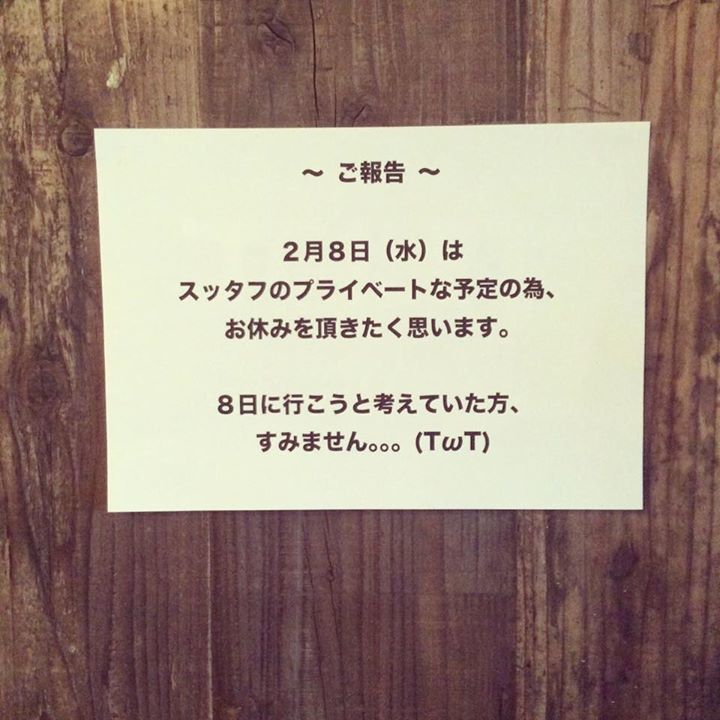 〜 ご報告 〜
２月８日（水）は
スッタフのプライベートな予定の為、
お休みを頂きたく思います。
８日に行こうと考えていた方、
すみません。。。(TωT)